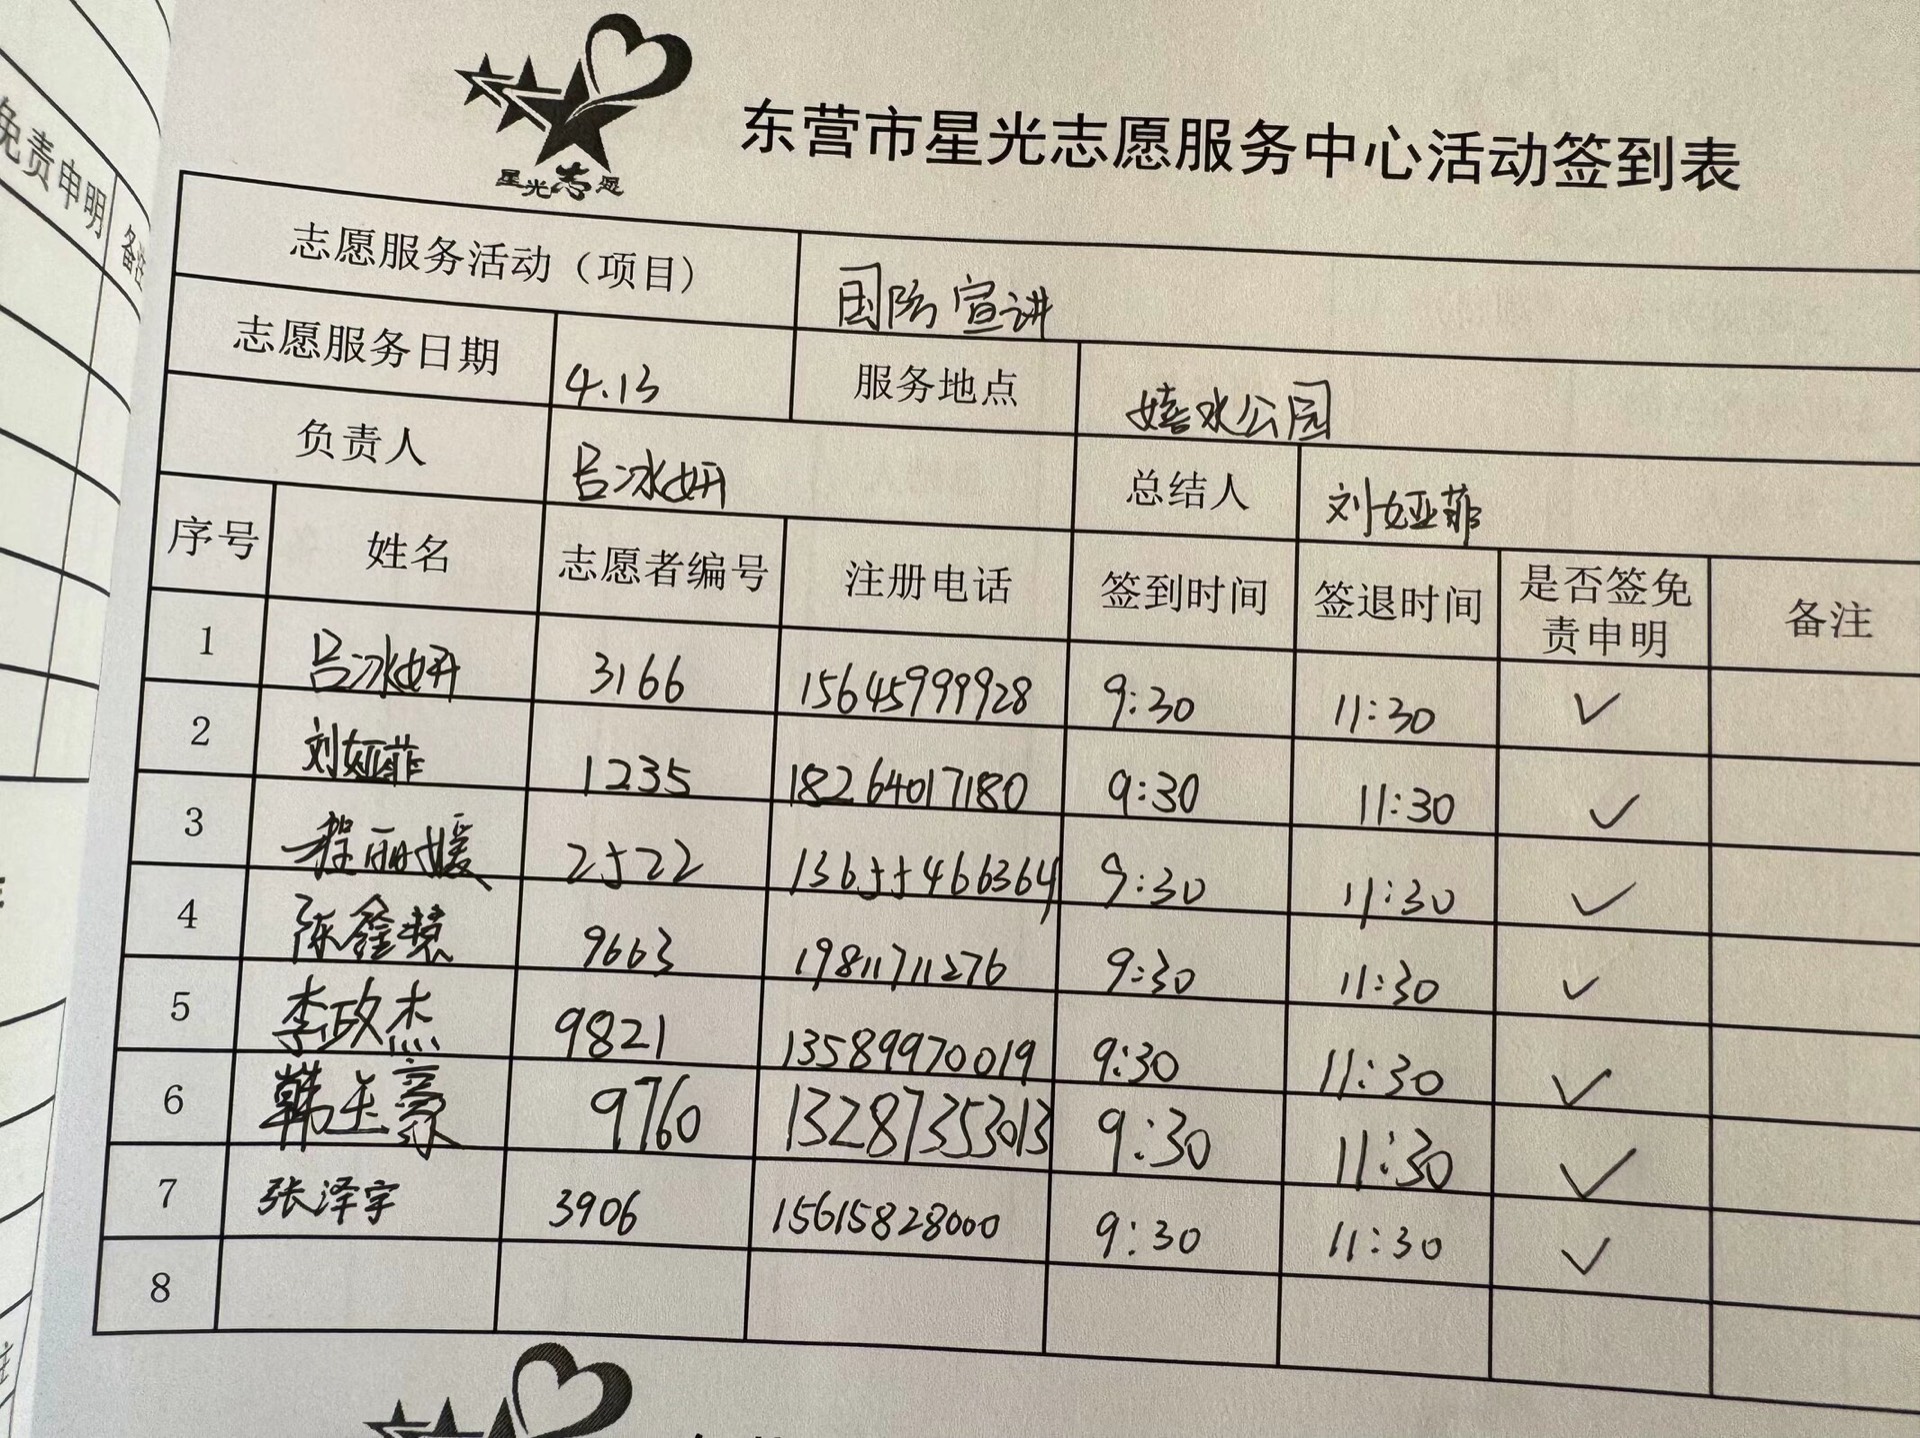 免责申明
备注
星光志愿
东营市星光志愿服务中心活动签到表
志愿服务活动（项目） 国防宣讲
志愿服务日期 4.13 服务地点 嬉水公园
负责人 吕冰妍 总结人 刘娅菲
序号 姓名 志愿者编号 注册电话 签到时间 签退时间 是否签免责申明 备注
1 吕冰妍 3166 15645999928 9:30 11:30 ✓
2 刘娅菲 1235 18264017180 9:30 11:30 ✓
3 程丽媛 2522 13655466364 9:30 11:30 ✓
4 陈鑫慧 9663 19811711276 9:30 11:30 ✓
5 李政杰 9821 13589970019 9:30 11:30 ✓
6 韩玉豪 9760 13287353013 9:30 11:30 ✓
7 张泽宇 3906 15615828000 9:30 11:30 ✓
8